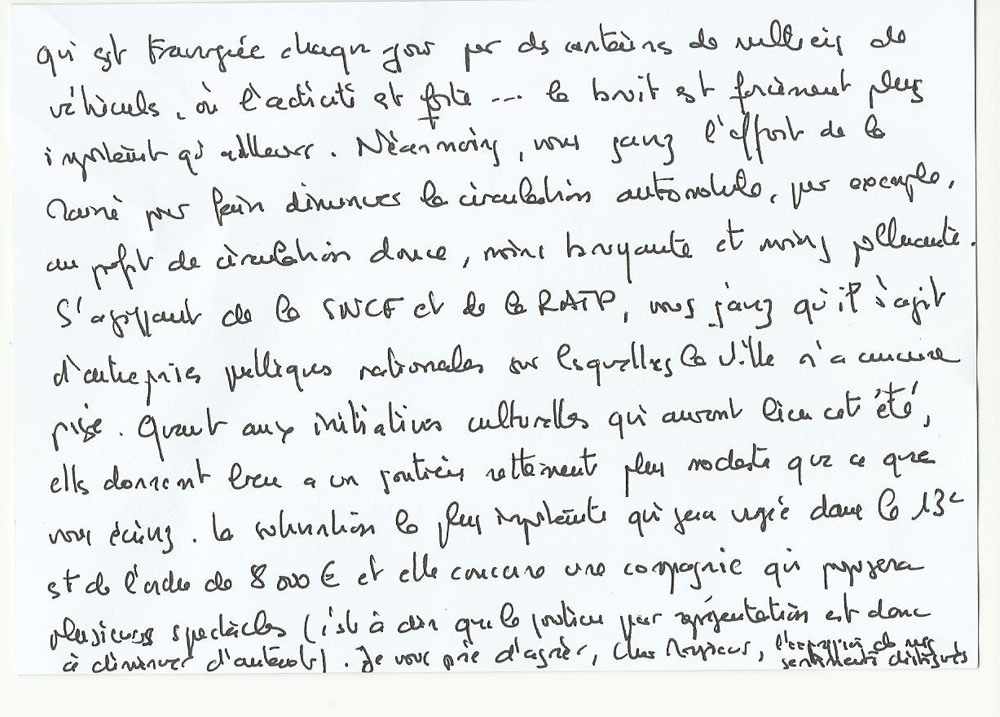 qui est traversée chaque jour par des centaines de milliers de
véhicules, où l'activité est forte --- le bruit est forcément plus
important qu'ailleurs. Néanmoins, vous savez l'effort de la
Mairie pour faire diminuer la circulation automobile, par exemple,
au profit de circulation douce, moins bruyante et moins polluante.
S'agissant de la SNCF et de la RATP, vous savez qu'il s'agit
d'entreprises publiques nationales sur lesquelles la Ville n'a aucune
prise. Quant aux initiatives culturelles qui auront lieu cet été,
elles donnent lieu a un soutien nettement plus modeste que ce que
vous écrivez. La subvention la plus importante qui sera versée dans le 13e
est de l'ordre de 8 000 € et elle concerne une compagnie qui proposera
plusieurs spectacles (c'est à dire que le soutien par représentation est donc
à diminuer d'autant). Je vous prie d'agréer, Cher Monsieur, l'expression de mes
sentiments distingués